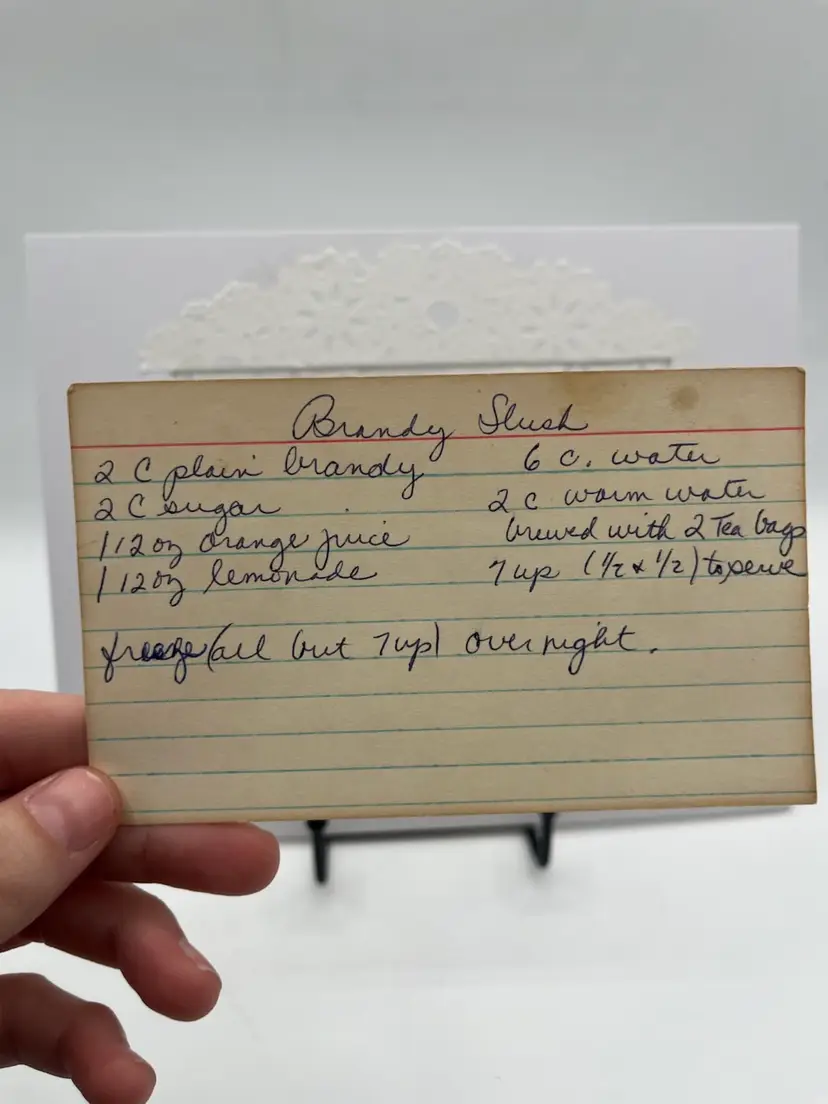 Brandy Slush
2 C plain brandy
2 C sugar
1 12 oz orange juice
1 12 oz lemonade
6 c. water
2 c warm water
brewed with 2 Tea bags
7 up (1/2 & 1/2) to serve
freeze (all but 7 up) overnight.